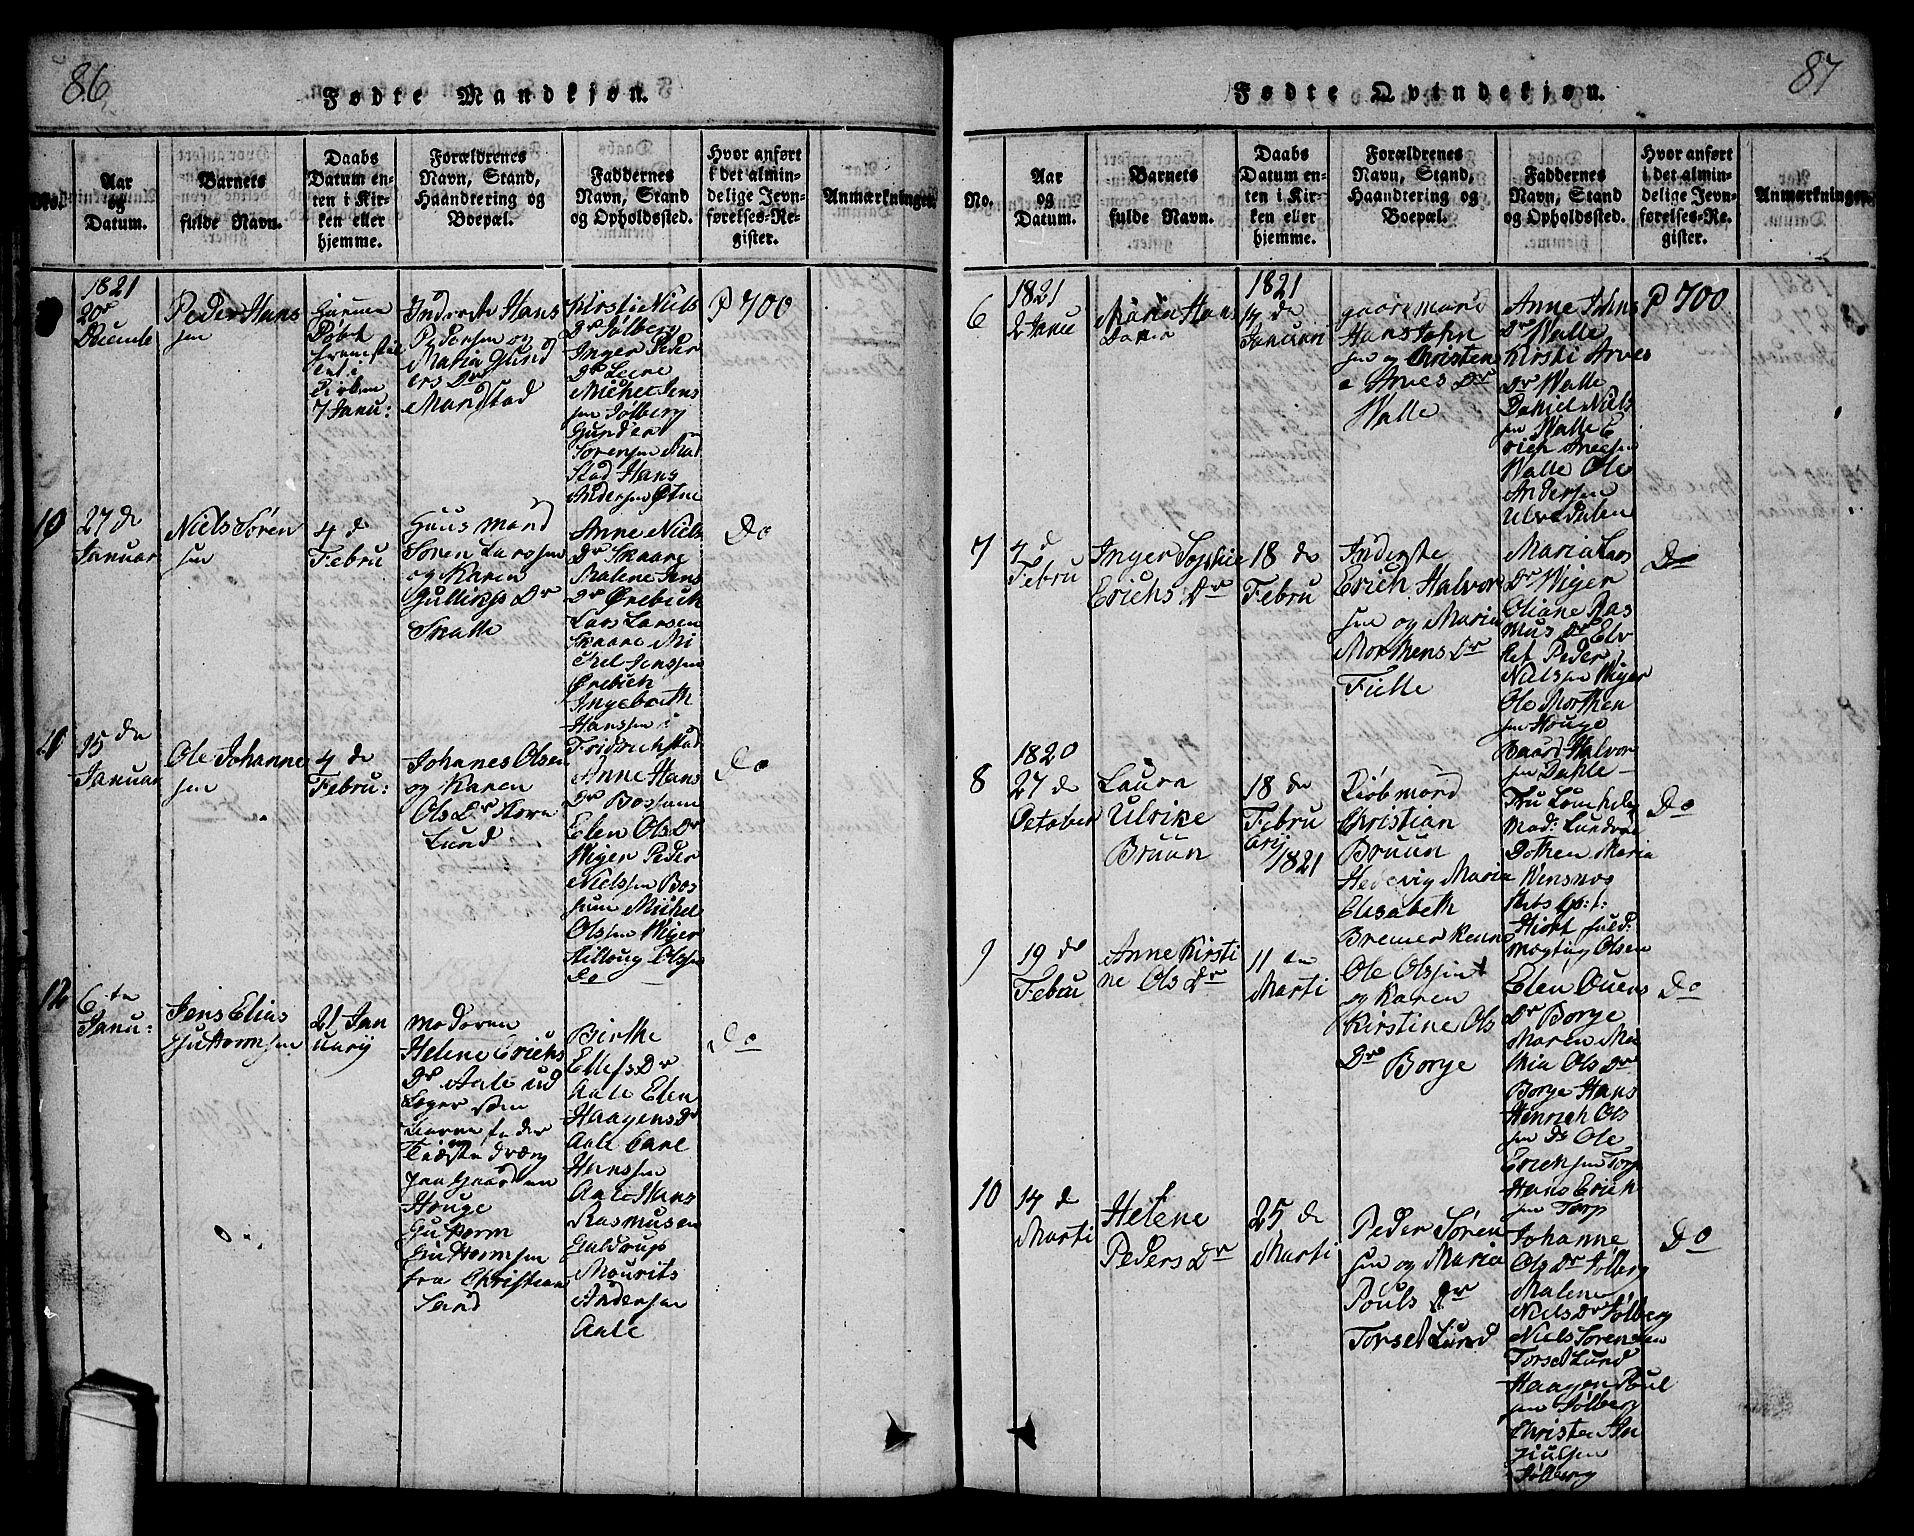 86
Fødte Mandkjøn.
No.
Aar
og
Datum.
Barnets
fulde Navn.
Daabs
Datum en-
ten i Kir-
ken eller
hjemme.
Forældrenes
Navn, Stand,
Haandtering og
Boepæl.
Faddernes
Navn, Stand
og Opholdssted.
Hvor anført
i det almin-
delige Jevn-
førelses-Re-
gister.
Anmærkninger.
1821
20de
Decembe
Peder Hans
sen
Hiemme
Døbt
fremstil
let i
Kirken
7 Janu:
Inderste Hans
Pedersen og
Maria Gund
ers Dr
Marstad
Kirstie Niels
Dr Jølberg
Inger Peder
Dr Leine
Michel Jens
sen Jølberg
Gunder
Sørensen Mar
stad Hans
Andersen
P 700
10
27 de
Januar
Niels Søren
sen
4 de
Febru
Huusmand
Søren Larssen
og Karen
Gullichs Dr
Skalle
Anne Niels
Dr Skaare
Malene Jens
Dr Ørebæck
Lars Larsen
Skaare Mi
chel Jenssen
Ørebæch
Ingebreth
Hanssen i
Fridrichstad
Do
11
15 de
Januar
Ole Johanne
sen
4 de
Febru:
Johanes Olsen
og Karen
Ols Dr Korn
Lund
Anne Hans
Dr Bossum
Elen Ols Dr
Wiger Peder
Nielssen Bos
sum Michel
Olssen Wiger
Olssen
Do
Do
12
6 te
Janu:
Jens Elias
Guttormsen
21 Jan
uarij
Moderen
Helene Erichs
Dr Aale ud
Leger som
Barne fader
paa Gaarden
Houge
Guttorm
Guttormsen
fra Christian
Sand
Birthe
Ellefs Dr
Aale Elen
Haagens Dr
Aale Carl
Hanssen
Aale Hans
Rasmusen
Mourits
Andersen
Aale
Do
87
Fødte Qvindekjøn.
No.
Aar
og
Datum.
Barnets
fulde Navn.
Daabs
Datum en-
ten i Kir-
ken eller
hjemme.
Forældrenes
Navn, Stand,
Haandtering og
Boepæl.
Faddernes
Navn, Stand
og Opholdssted.
Hvor anført
i det almin-
delige Jevn-
førelses-Re-
gister.
Anmærkninger.
6
1821
2 Janu
Maria Hans
Dater
1821
14 de
Januari
gaardmand
Hans John
sen og Christen
e Arnes Dr
Walle
Anne Johns
Dr Walle
Kirsti Arnes
Dr Walle
Daniel Niels
sen Walle E
rich Arnessen
Walle Ole
Andersen
Ulvedalen
P 700
7
4 de
Febru
Inger Sophie
Erichs Dr
18 de
Febru
Inderste
Erich Halvor
sen og Maria
Morthens Dr
Fielle
Maria Lars
Dr Wiger
Oliane Ras
mus Dr Elv
Peder
Nielsen Wiger
Ole Morthen
sen Houge
Baard Halvor
sen Dahle
Do
8
1820
27 de
October
Laura
Ulrike
Bruun
18 de
Febru
arij
1821
Kiøbmand
Christian
Bruun
Hedevig Maria
Elisabeth
Bremer
Fru
Mad: Lundvæ
Dothen Maria
Hiort fuld:
mægtig Olsen
Do
9
19 de
Febru
Anne Kirsti
ne Ols Dr
11 te
Marti
Ole Olssen
og Karen
Kirstine Ols
Dr Borge
Elen Ouens
Dr Borge
Maren Ma
thia Ols Dr
Borge Hans
Heinrich Ols
sen Do Ole
Ericksen Torp
Hans Erich
sen Torp
Do
10
14 de
Marti
Helene
Peders Dr
25 de
Marti
Peder Søren
sen og Maria
Pouls Dr
Torset Lund
Johanne
Ols Dr Jølberg
Malene
Niels Dr Jølberg
Niels Sørensen
Torset Lund
Haagen Poul
sen Jølberg
Christen

Jølberg
Do